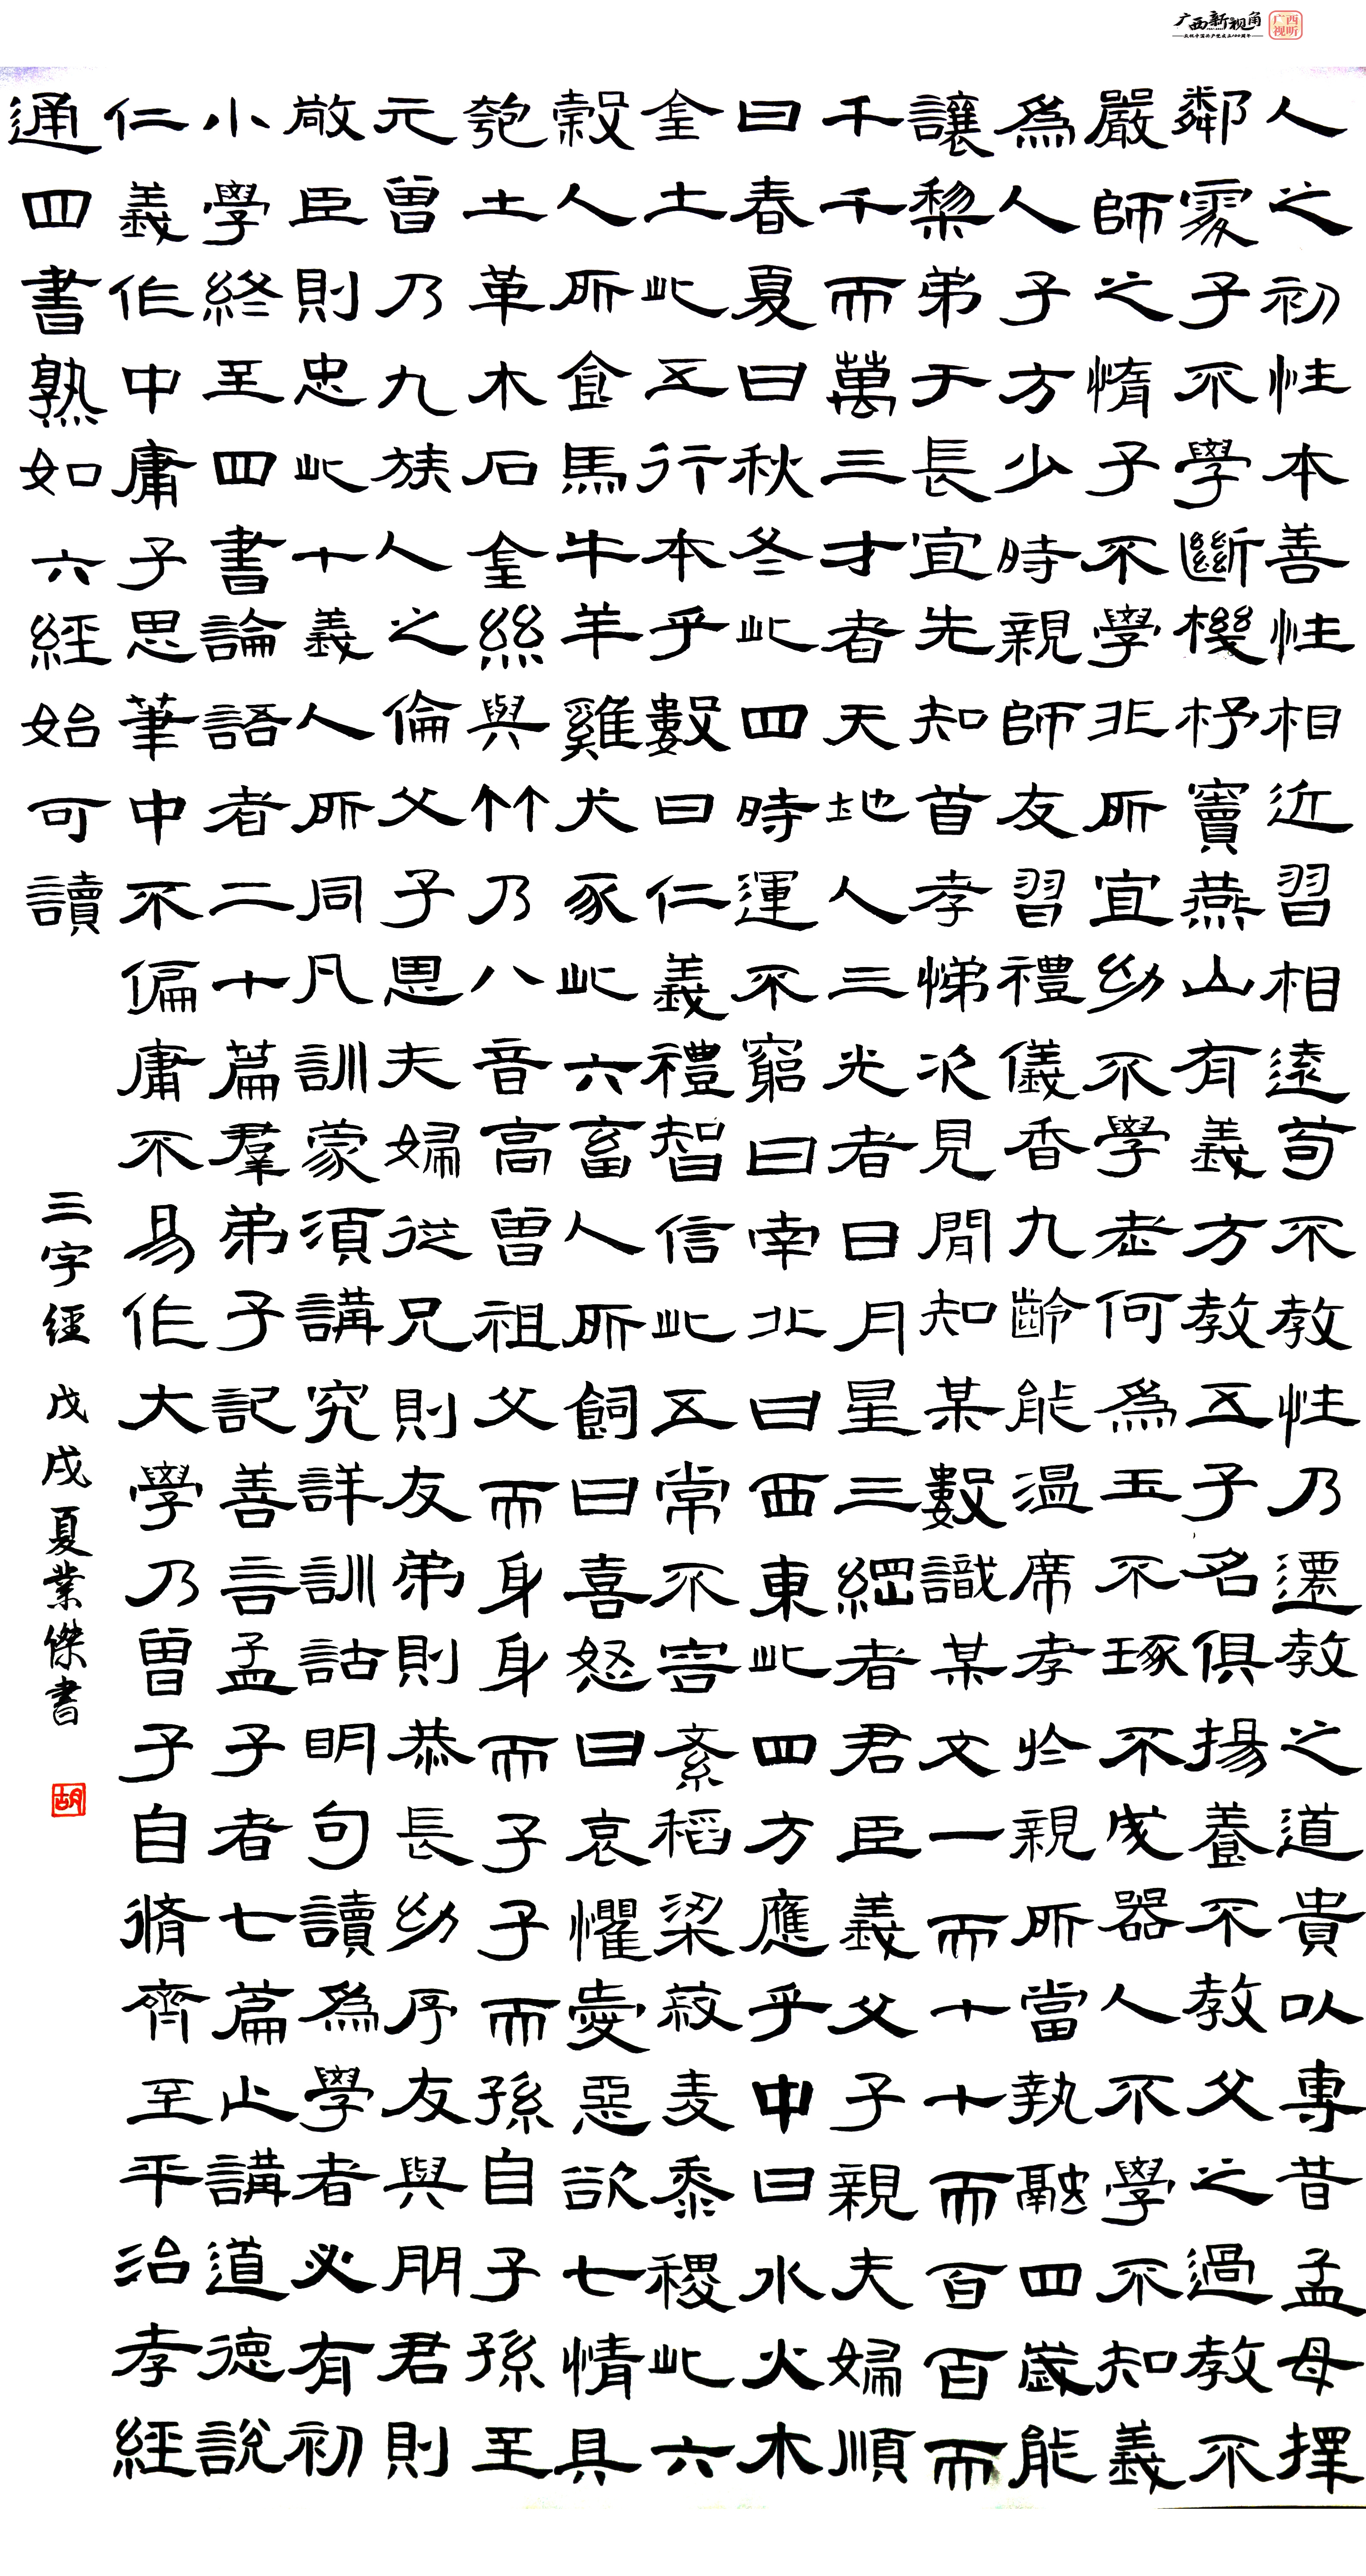 广西新视角
庆祝中国共产党成立100周年
广西
视听
人之初性本善性相近習相遠苟不教性乃遷教之道貴以專昔孟母擇
鄰處子不學斷機杼竇燕山有義方教五子名俱揚養不教父之過教不
嚴師之惰子不學非所宜幼不學老何為玉不琢不成器人不學不知義
為人子方少時親師友習禮儀香九齡能溫席孝於親所當執融四歲能
讓梨弟于長宜先知首孝悌次見聞知某數識某文一而十十而百百而
千千而萬三才者天地人三光者日月星三綱者君臣義父子親夫婦順
曰春夏曰秋冬此四時運不窮曰南北曰西東此四方應乎中曰水火木
金土此五行本乎數曰仁義禮智信此五常不容紊稻粱菽麥黍稷此六
穀人所食馬牛羊雞犬豕此六畜人所飼曰喜怒曰哀懼愛惡欲七情具
匏土革木石金絲與竹乃八音高曾祖父而身身而子子而孫自子孫至
元曾乃九族人之倫父子恩夫婦從兄則友弟則恭長幼序友與朋君則
敬臣則忠此十義人所同凡訓蒙須講究詳訓詁明句讀為學者必有初
小學終至四書論語者二十篇羣弟子記善言孟子者七篇止講道德說
仁義作中庸子思筆中不偏庸不易作大學乃曾子自脩齊至平治孝經
通四書熟如六經始可讀
三字經 戊戌夏業傑書
胡